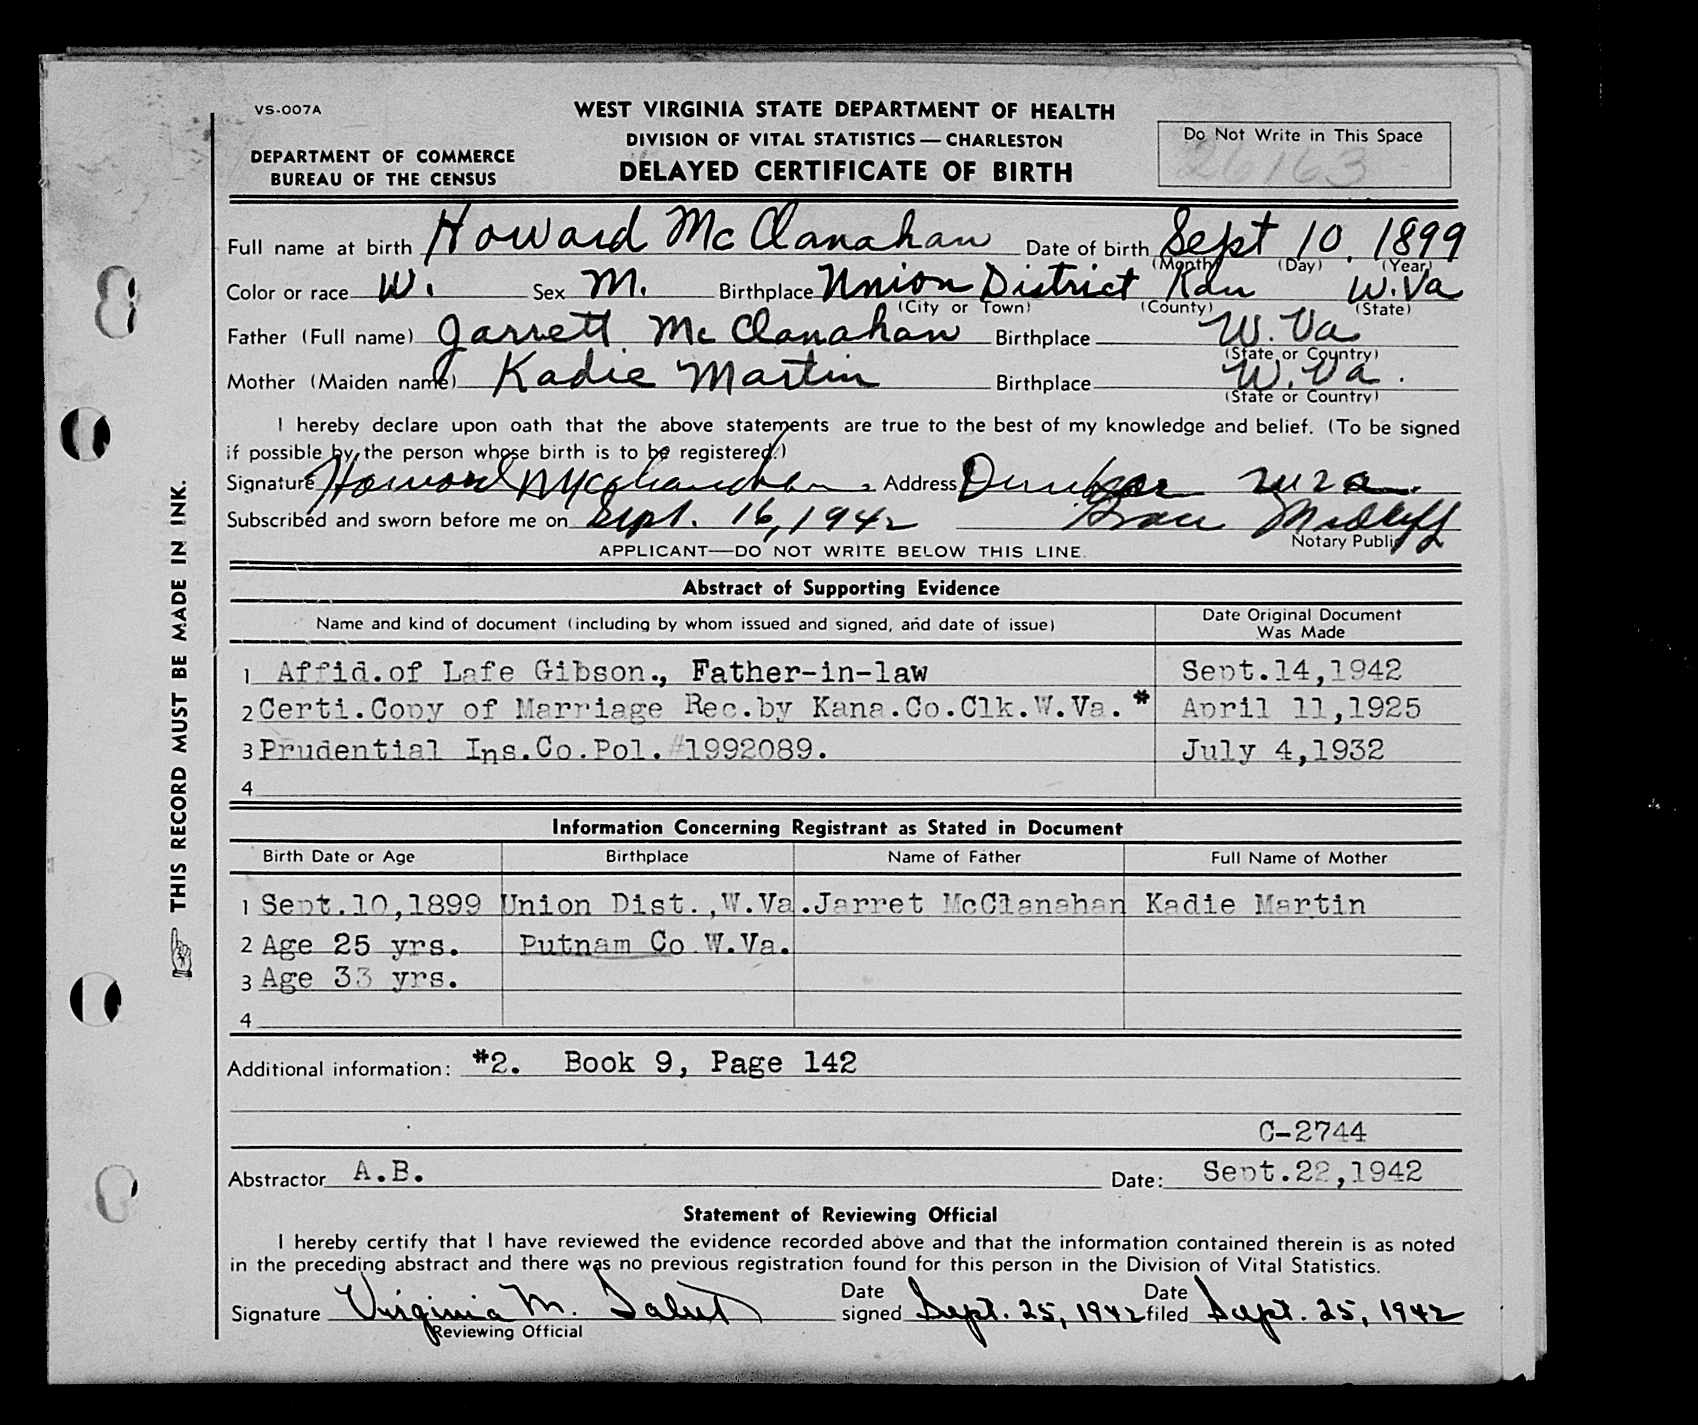 VS-007A
WEST VIRGINIA STATE DEPARTMENT OF HEALTH
DIVISION OF VITAL STATISTICS — CHARLESTON
DELAYED CERTIFICATE OF BIRTH
DEPARTMENT OF COMMERCE
BUREAU OF THE CENSUS
Do Not Write in This Space
26163
Full name at birth Howard McClanahan Date of birth Sept 10, 1899
(Month) (Day) (Year)
Color or race W. Sex M. Birthplace Union District Kan W.Va
(City or Town) (County) (State)
Father (Full name) Jarrett McClanahan Birthplace W. Va
(State or Country)
Mother (Maiden name) Kadie Martin Birthplace W. Va.
(State or Country)
I hereby declare upon oath that the above statements are true to the best of my knowledge and belief. (To be signed
if possible by the person whose birth is to be registered.)
Signature Howard McClanahan Address Dunbar W Va.
Subscribed and sworn before me on Sept. 16, 1942 Grace Midkiff
Notary Public
APPLICANT—DO NOT WRITE BELOW THIS LINE.
Abstract of Supporting Evidence
Name and kind of document (including by whom issued and signed, and date of issue)
Date Original Document
Was Made
1 Affid.of Lafe Gibson., Father-in-law Sept.14,1942
2 Certi.Copy of Marriage Rec.by Kana.Co.Clk.W.Va.* April 11,1925
3 Prudential Ins.Co.Pol.#1992089. July 4,1932
4
Information Concerning Registrant as Stated in Document
Birth Date or Age Birthplace Name of Father Full Name of Mother
1 Sept.10,1899 Union Dist.,W.Va. Jarret McClanahan Kadie Martin
2 Age 25 yrs. Putnam Co.W.Va.
3 Age 33 yrs.
4
Additional information: *2. Book 9, Page 142
C-2744
Abstractor A.B. Date: Sept.22,1942
Statement of Reviewing Official
I hereby certify that I have reviewed the evidence recorded above and that the information contained therein is as noted
in the preceding abstract and there was no previous registration found for this person in the Division of Vital Statistics.
Signature Virginia M. Date signed Sept. 25, 1942 Date filed Sept. 25, 1942
Reviewing Official
THIS RECORD MUST BE MADE IN INK.